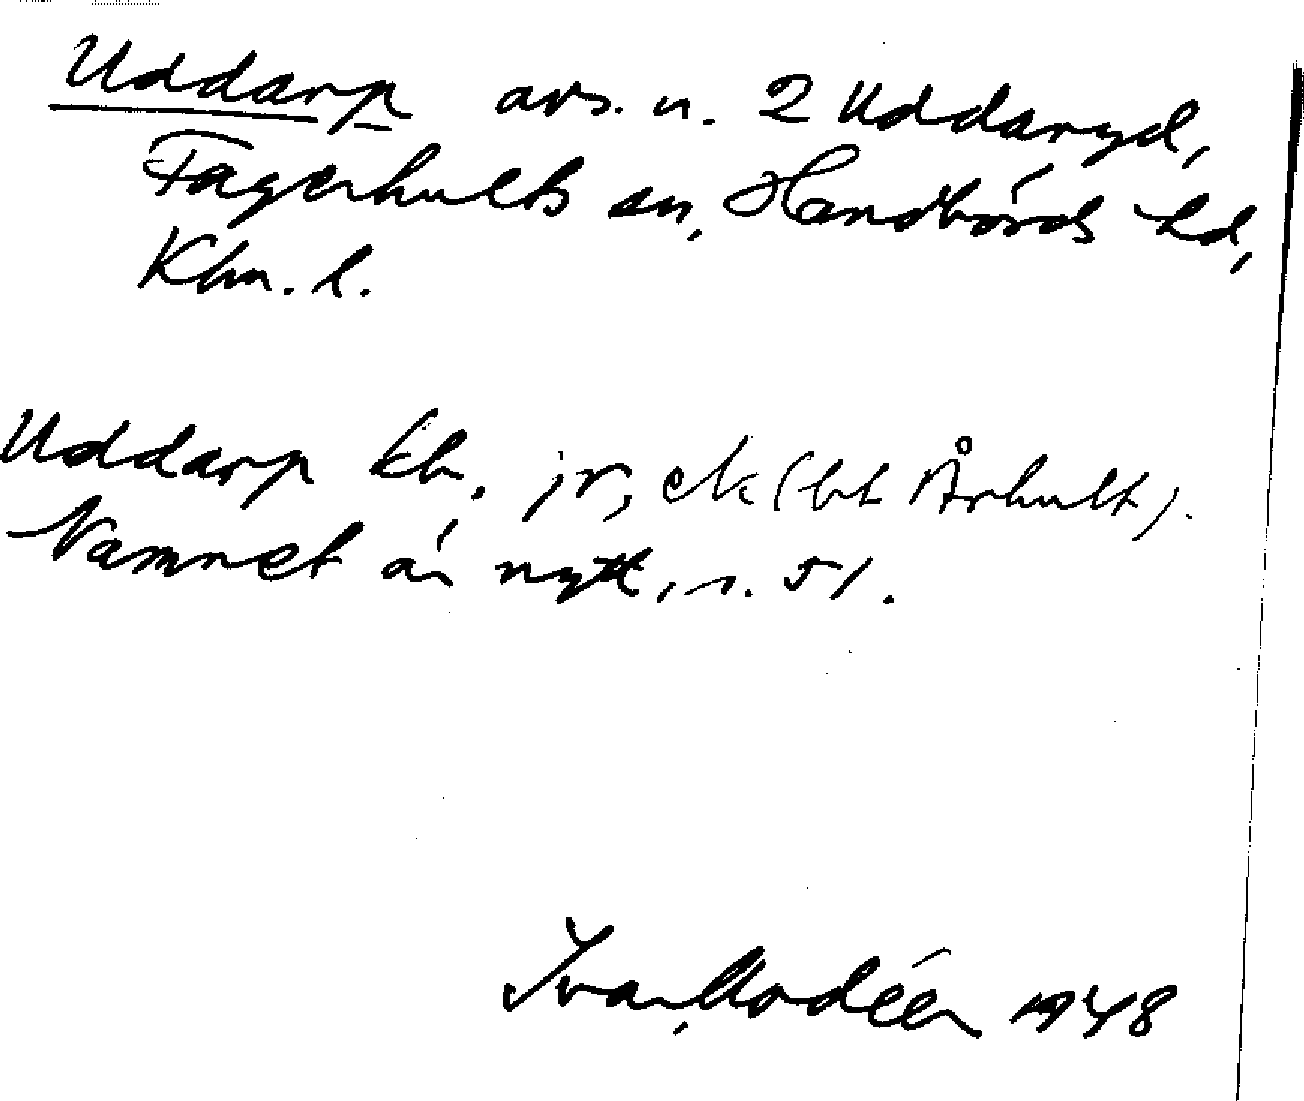 Uddarp avs. u. 2 Uddaryd,
Fagerhults sn, Handbörds hd,
Klm. l.
Uddarp kb, jr, ek (bl Århult).
Namnet är nytt, s. 51.
Ivar Modéer 1948